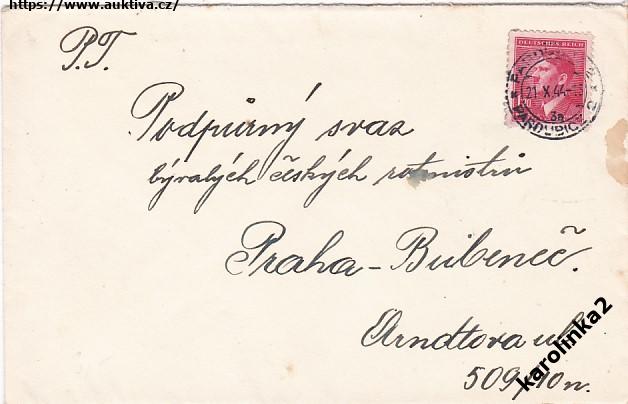 https://www.auktiva.cz/
P.T.
DEUTSCHES REICH
21.X.44
1.20
3a
PARDUBICE 2
Podpůrný svaz
bývalých českých rotmistrů
Praha-Bubeneč.
Arndtova ul.
509/10n.
karolinka2